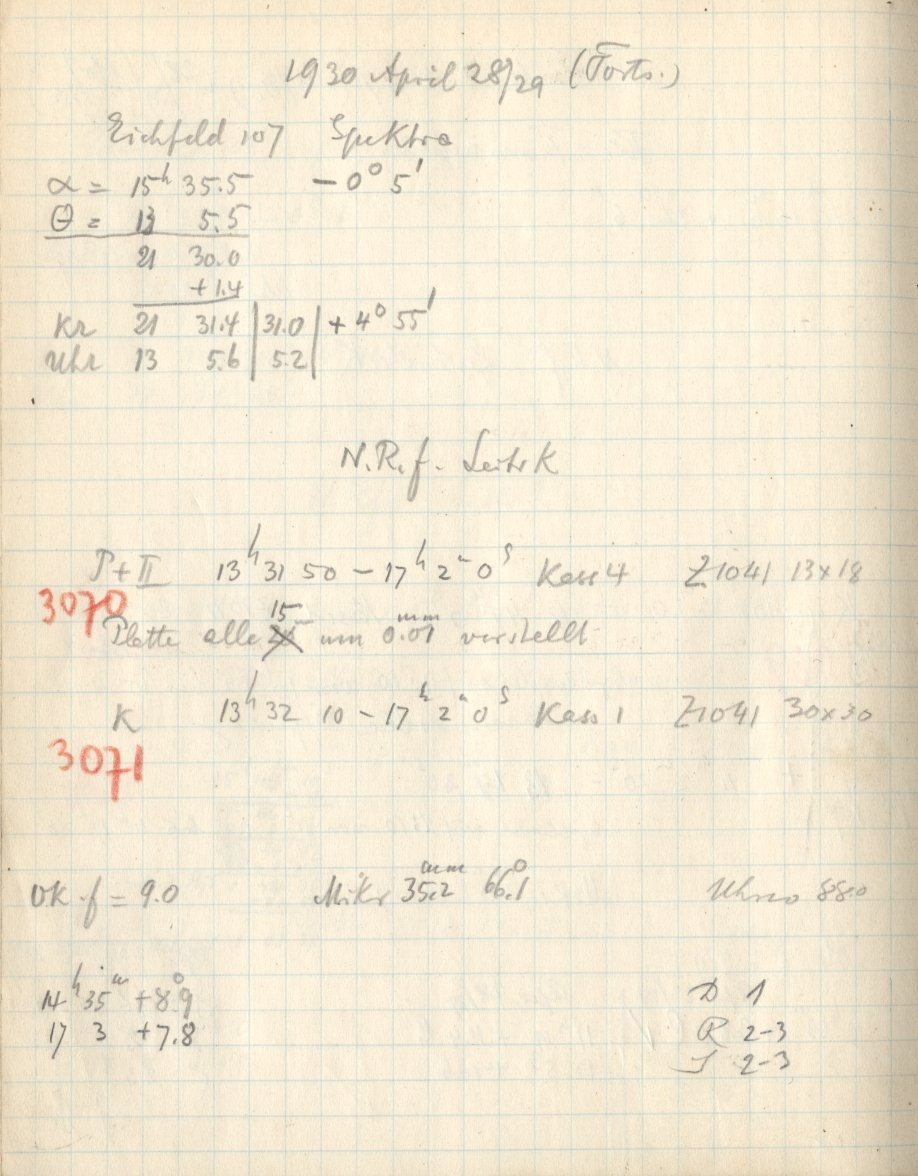 1930 April 28/29 (Forts.)
Eichfeld 107 Spektra
α = 15h 35.5 - 0° 5'
θ = 13 5.5
21 30.0
+1.4
Kr 21 31.4 | 31.0 | + 4° 55'
Uhr 13 5.6 | 5.2 |
N.R.f. Leitr K
P + II 13h 31 50 - 17h 2m 0s Kass 4 Z1041 13x18
3070
Platte alle 15 um 0.01mm verstellt
K 13h 32 10 - 17h 2m 0s Kass 1 Z1041 30x30
3071
OK f = 9.0 Mikr 35.2mm 66.1° Uhr 88.0
14h 35m +8.9°
17 3 +7.8
D 1
R 2-3
J 2-3